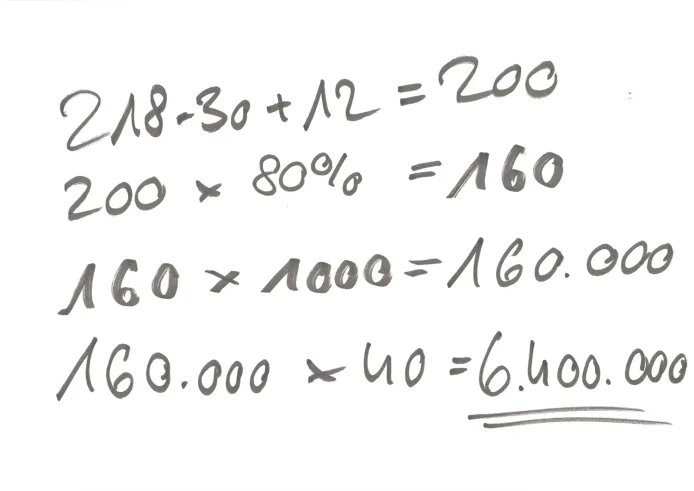 218-30+12=200
200 x 80% =160
160 x 1000=160.000
160.000 x 40=6.400.000